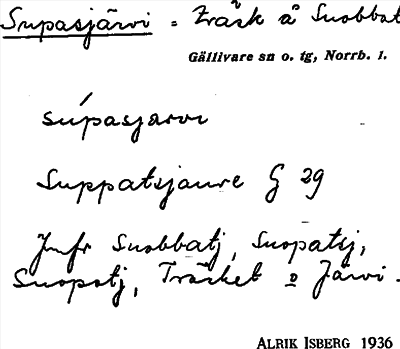 Supasjärvi = Träsk å Snobbat
Gällivare sn o. tg, Norrb. l.
súpasjarvi
Suppatsjaure G 29
Jmfr Snobbatj, Snopatsj,
Snopotj, Träsket o Järvi.
ALRIK ISBERG 1936